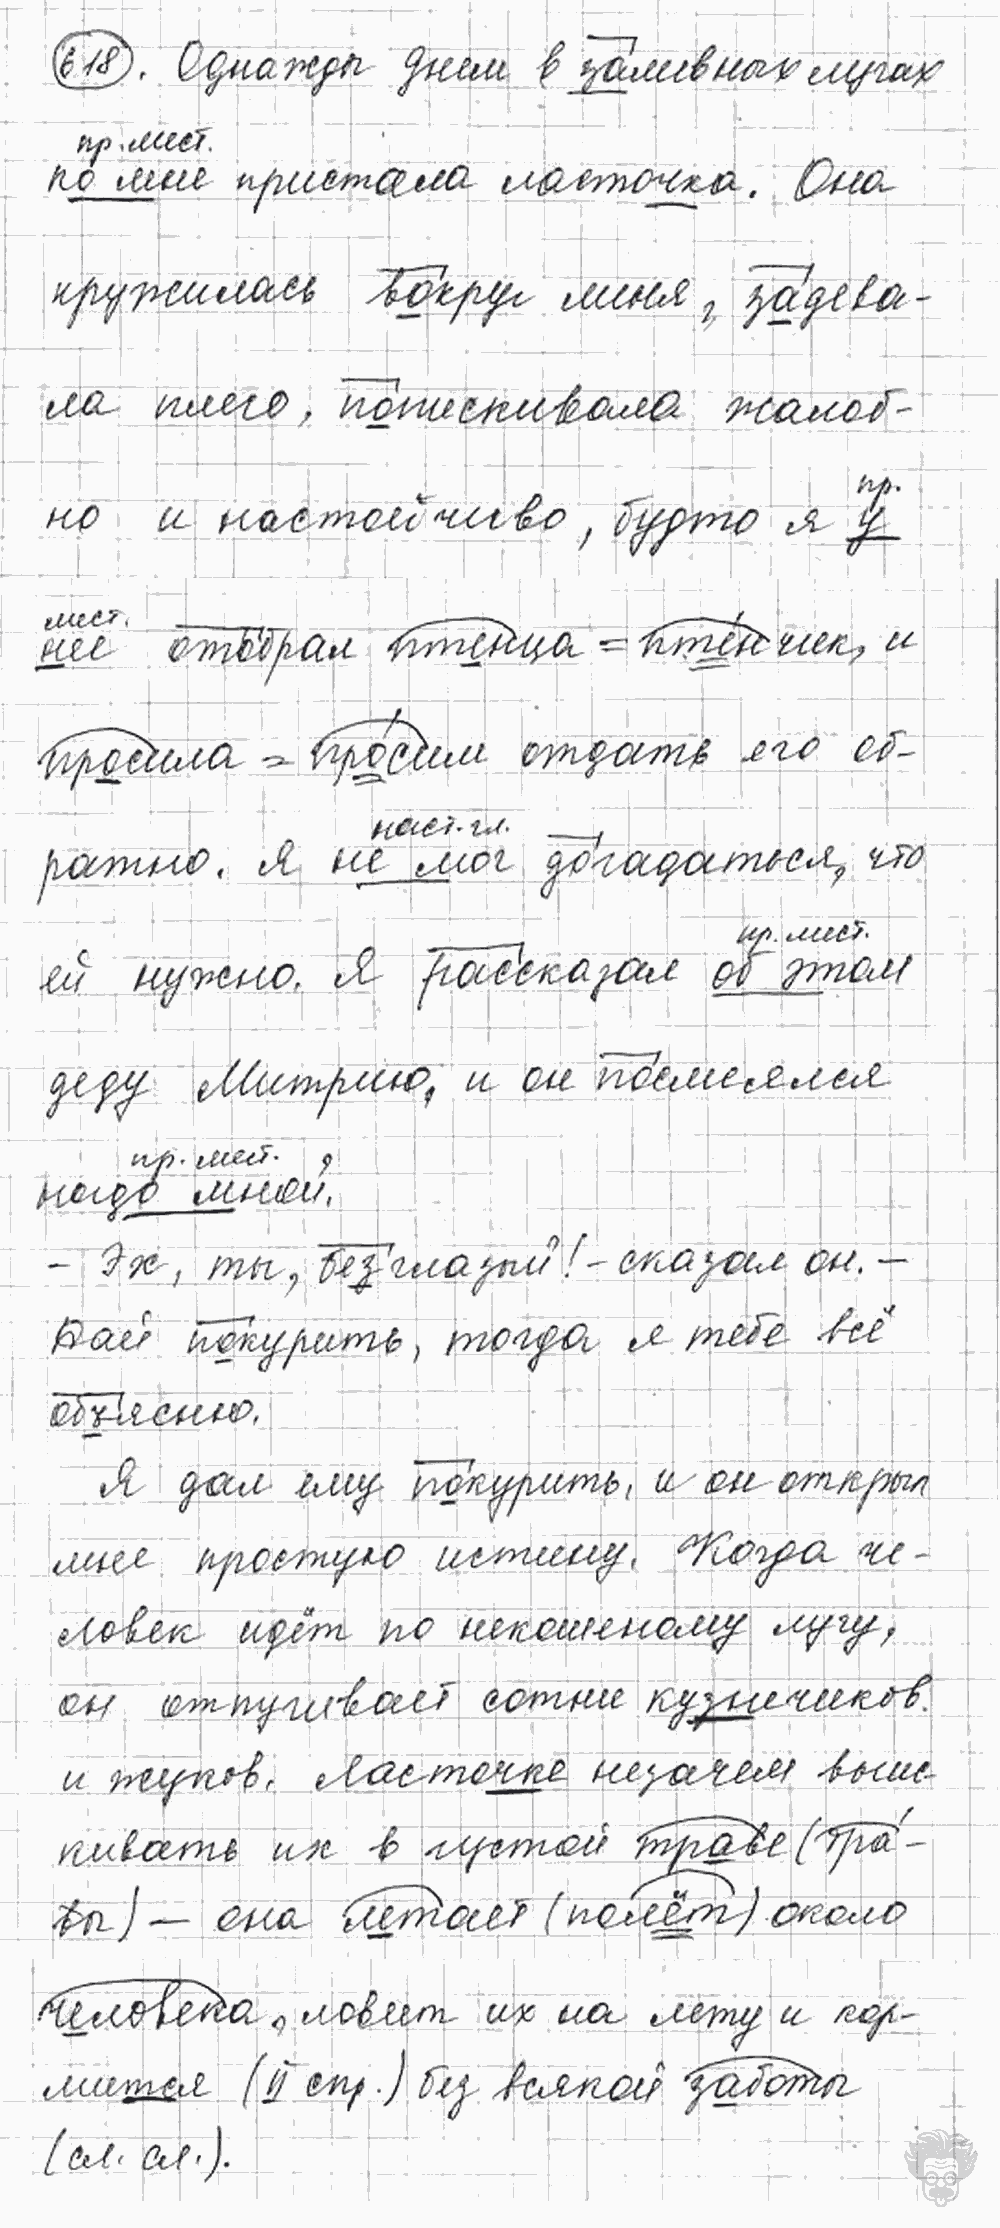 618. Однажды днем в заливных лугах
пр. мест.
ко мне пристала ласточка. Она
кружилась вокруг меня, задева-
ла плечо, попискивала жалоб-
но и настойчиво, будто я у
пр.
мест.
нее отобрал птенца = птенчик, и
просила = просим отдать его об-
ратно. Я не мог догадаться, что
наст. гл.
ей нужно. Я рассказал об этом
пр. мест.
деду Митрию, и он посмеялся
пр. мест.
надо мной.
- Эх, ты, безглазый! - сказал он. -
Дай покурить, тогда я тебе всё
объясню.
Я дал ему покурить, и он открыл
мне простую истину. Когда че-
ловек идёт по некошеному лугу,
он отпугивает сотни кузнечиков
и жуков. Ласточке незачем выис-
кивать их в густой траве (тра-
вы) - она летает (полёт) около
человека, ловит их на лету и кор-
мится (II спр.) без всякой заботы
(сл. сл.).